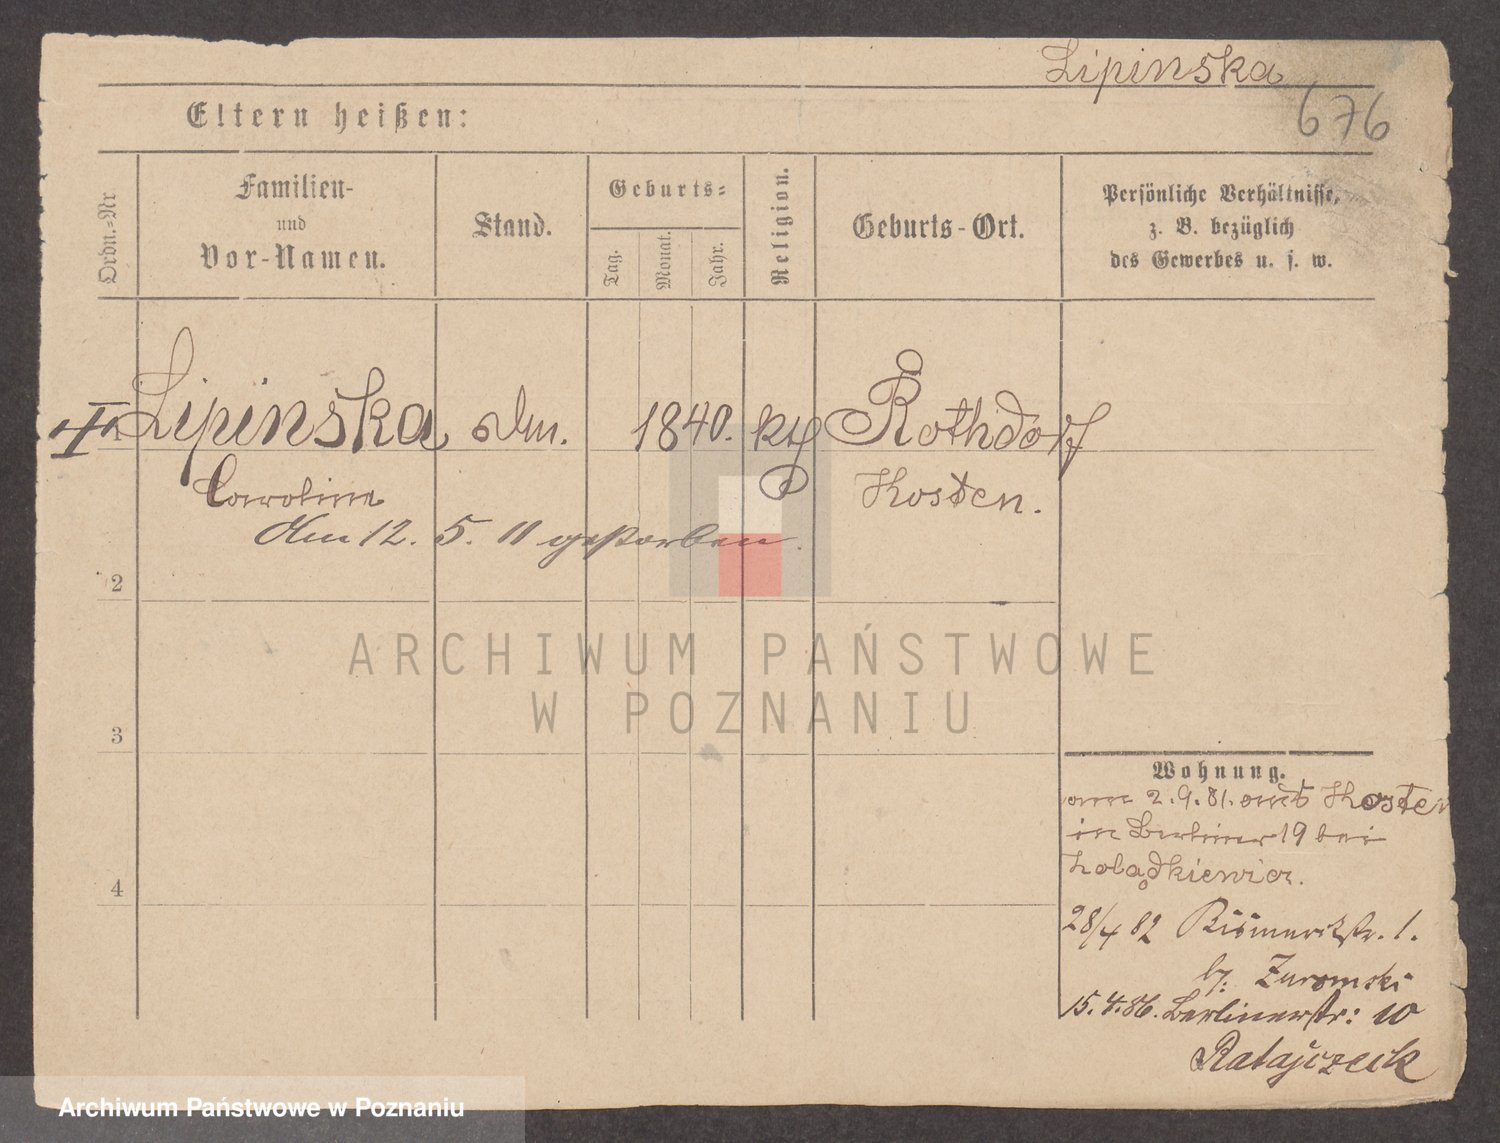 Lipinska
676
Eltern heißen:
Ordn.-Nr
Familien-
und
Vor-Namen.
Stand.
Geburts-
Tag.
Monat.
Jahr.
Religion.
Geburts-Ort.
Persönliche Verhältnisse,
z. B. bezüglich
des Gewerbes u. s. w.
1 Lipinska 1840. kth Rothdorf
Caroline Kosten.
Am 12. 5. 11 gestorben.
2
3
4
Wohnung.
am 2.9.81. aus Kosten
in Berliner 19 bei
28/4 82 Bismarckstr. 1.
b. Zuromski
15.4.86. Berlinerstr: 10
Ratajczeck
ARCHIWUM PAŃSTWOWE
W POZNANIU
Archiwum Państwowe w Poznaniu